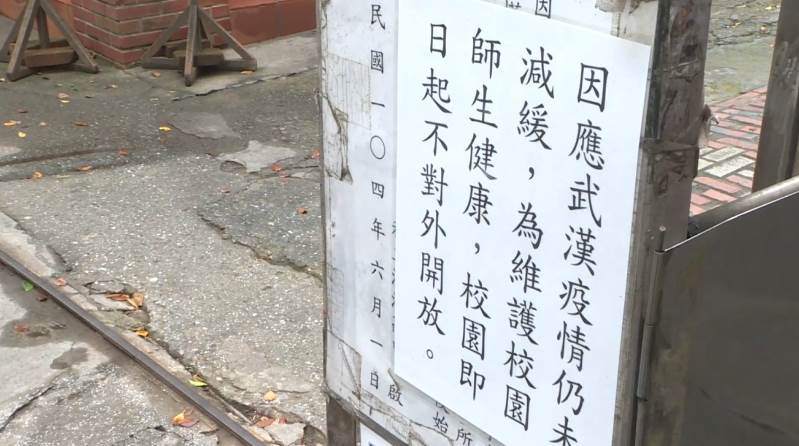 因應武漢疫情仍未
減緩，為維護校園
師生健康，校園即
日起不對外開放。
因
民國一〇四年六月一日啟
所
始